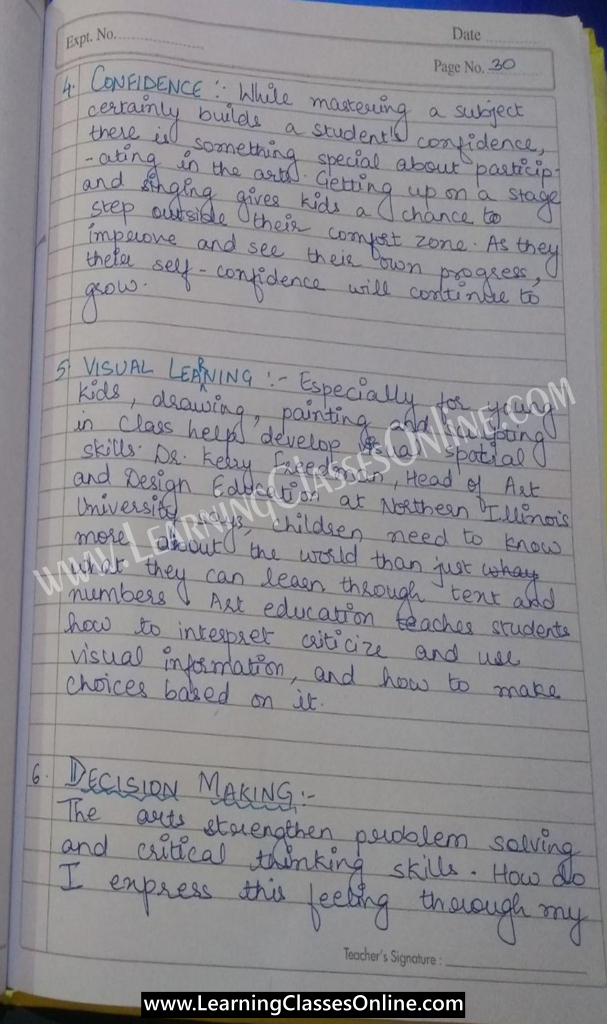 Expt. No.
Date
Page No. 30
4. CONFIDENCE :- While mastering a subject
certainly builds a student's confidence,
there is something special about particip-
-ating in the arts. Getting up on a stage
and singing gives kids a chance to
step outside their comfort zone. As they
improve and see their own progress,
their self-confidence will continue to
grow.
5. VISUAL LEARNING :- Especially for young
kids, drawing, painting and sculpting
in class help develop visual spatial
skills. Dr. Kerry Freedman, Head of Art
and Design Education at Northern Illinois
University says, children need to know
more about the world than just
what they can learn through text and
numbers. Art education teaches students
how to interpret criticize and use
visual information, and how to make
choices based on it.
www.LearningClassesOnline.com
6. DECISION MAKING :-
The arts strengthen problem solving
and critical thinking skills. How do
I express this feeling through my
Teacher's Signature :
www.LearningClassesOnline.com